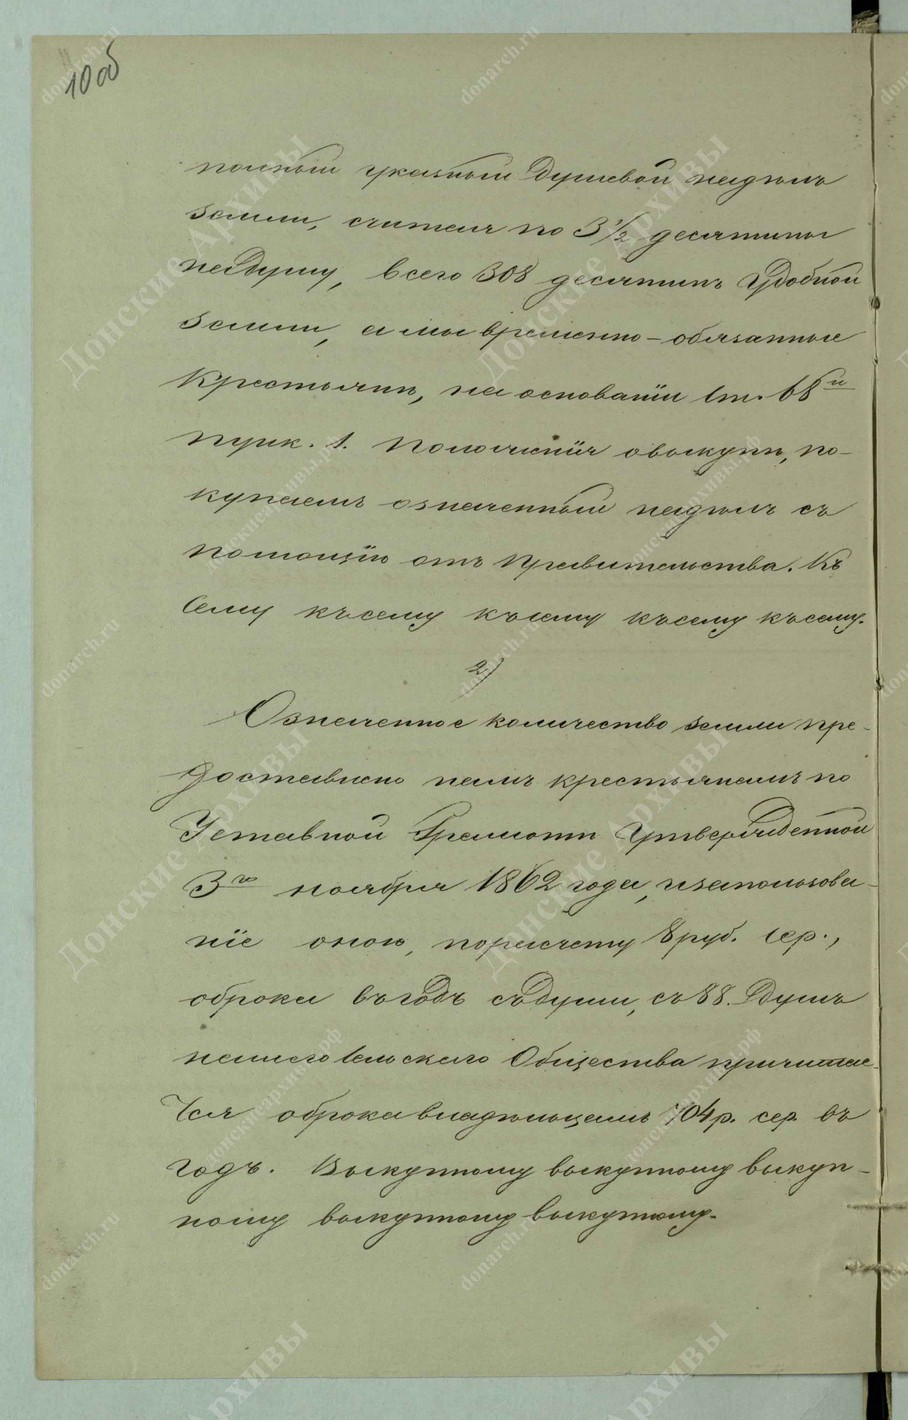 10об
полный указный душевой надѣлъ
земли, считая по 3½ десятины
на душу, всего 308 десятинъ удобной
земли, а мы временно-обязанные
крестьяне, на основаніи ст. 68й
пунк. 1. Положенія о выкупѣ, по-
купаемъ означенный надѣлъ съ
помощію отъ Правительства. Къ
сему къ сему къ сему къ сему къ сему.
2)
Означенное количество земли пре-
доставлено намъ крестьянамъ по
Уставной Грамотѣ утвержденной
3го ноября 1862 года, и за пользова-
ніе оною, по расчету 8 руб. сер.,
оброка въ годъ съ души, съ 88. душъ
нашего сельскаго Общества причитае-
тся оброка владѣльцамъ 704 р. сер. въ
годъ. Выкупному выкупному выкуп-
ному выкупному выкупному.